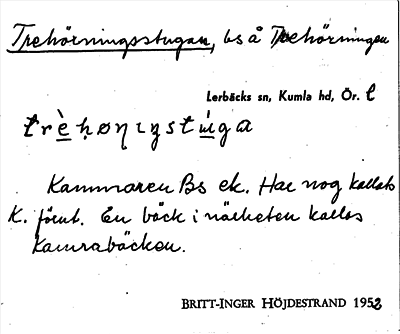 Trehörningsstugan, bs å Trehörningen
Lerbäcks sn, Kumla hd, Ör. l
Kammaren Bs ek. Har nog kallats
K. förut. En bäck i närheten kallas
Kamrabäcken.
BRITT-INGER HÖJDESTRAND 1952